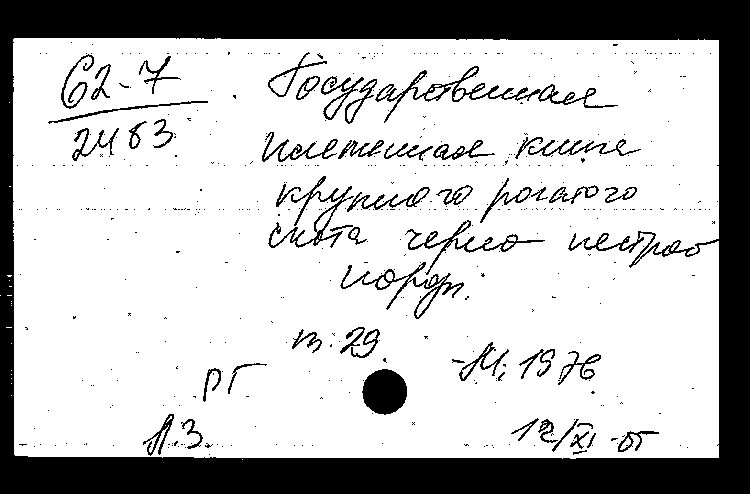 62-7 Государственная
2483 племенная книга
крупного рогатого
скота черно-пестрой
породы.
т. 29.
-М; 1976
РГ
Л.З.
12/XI-